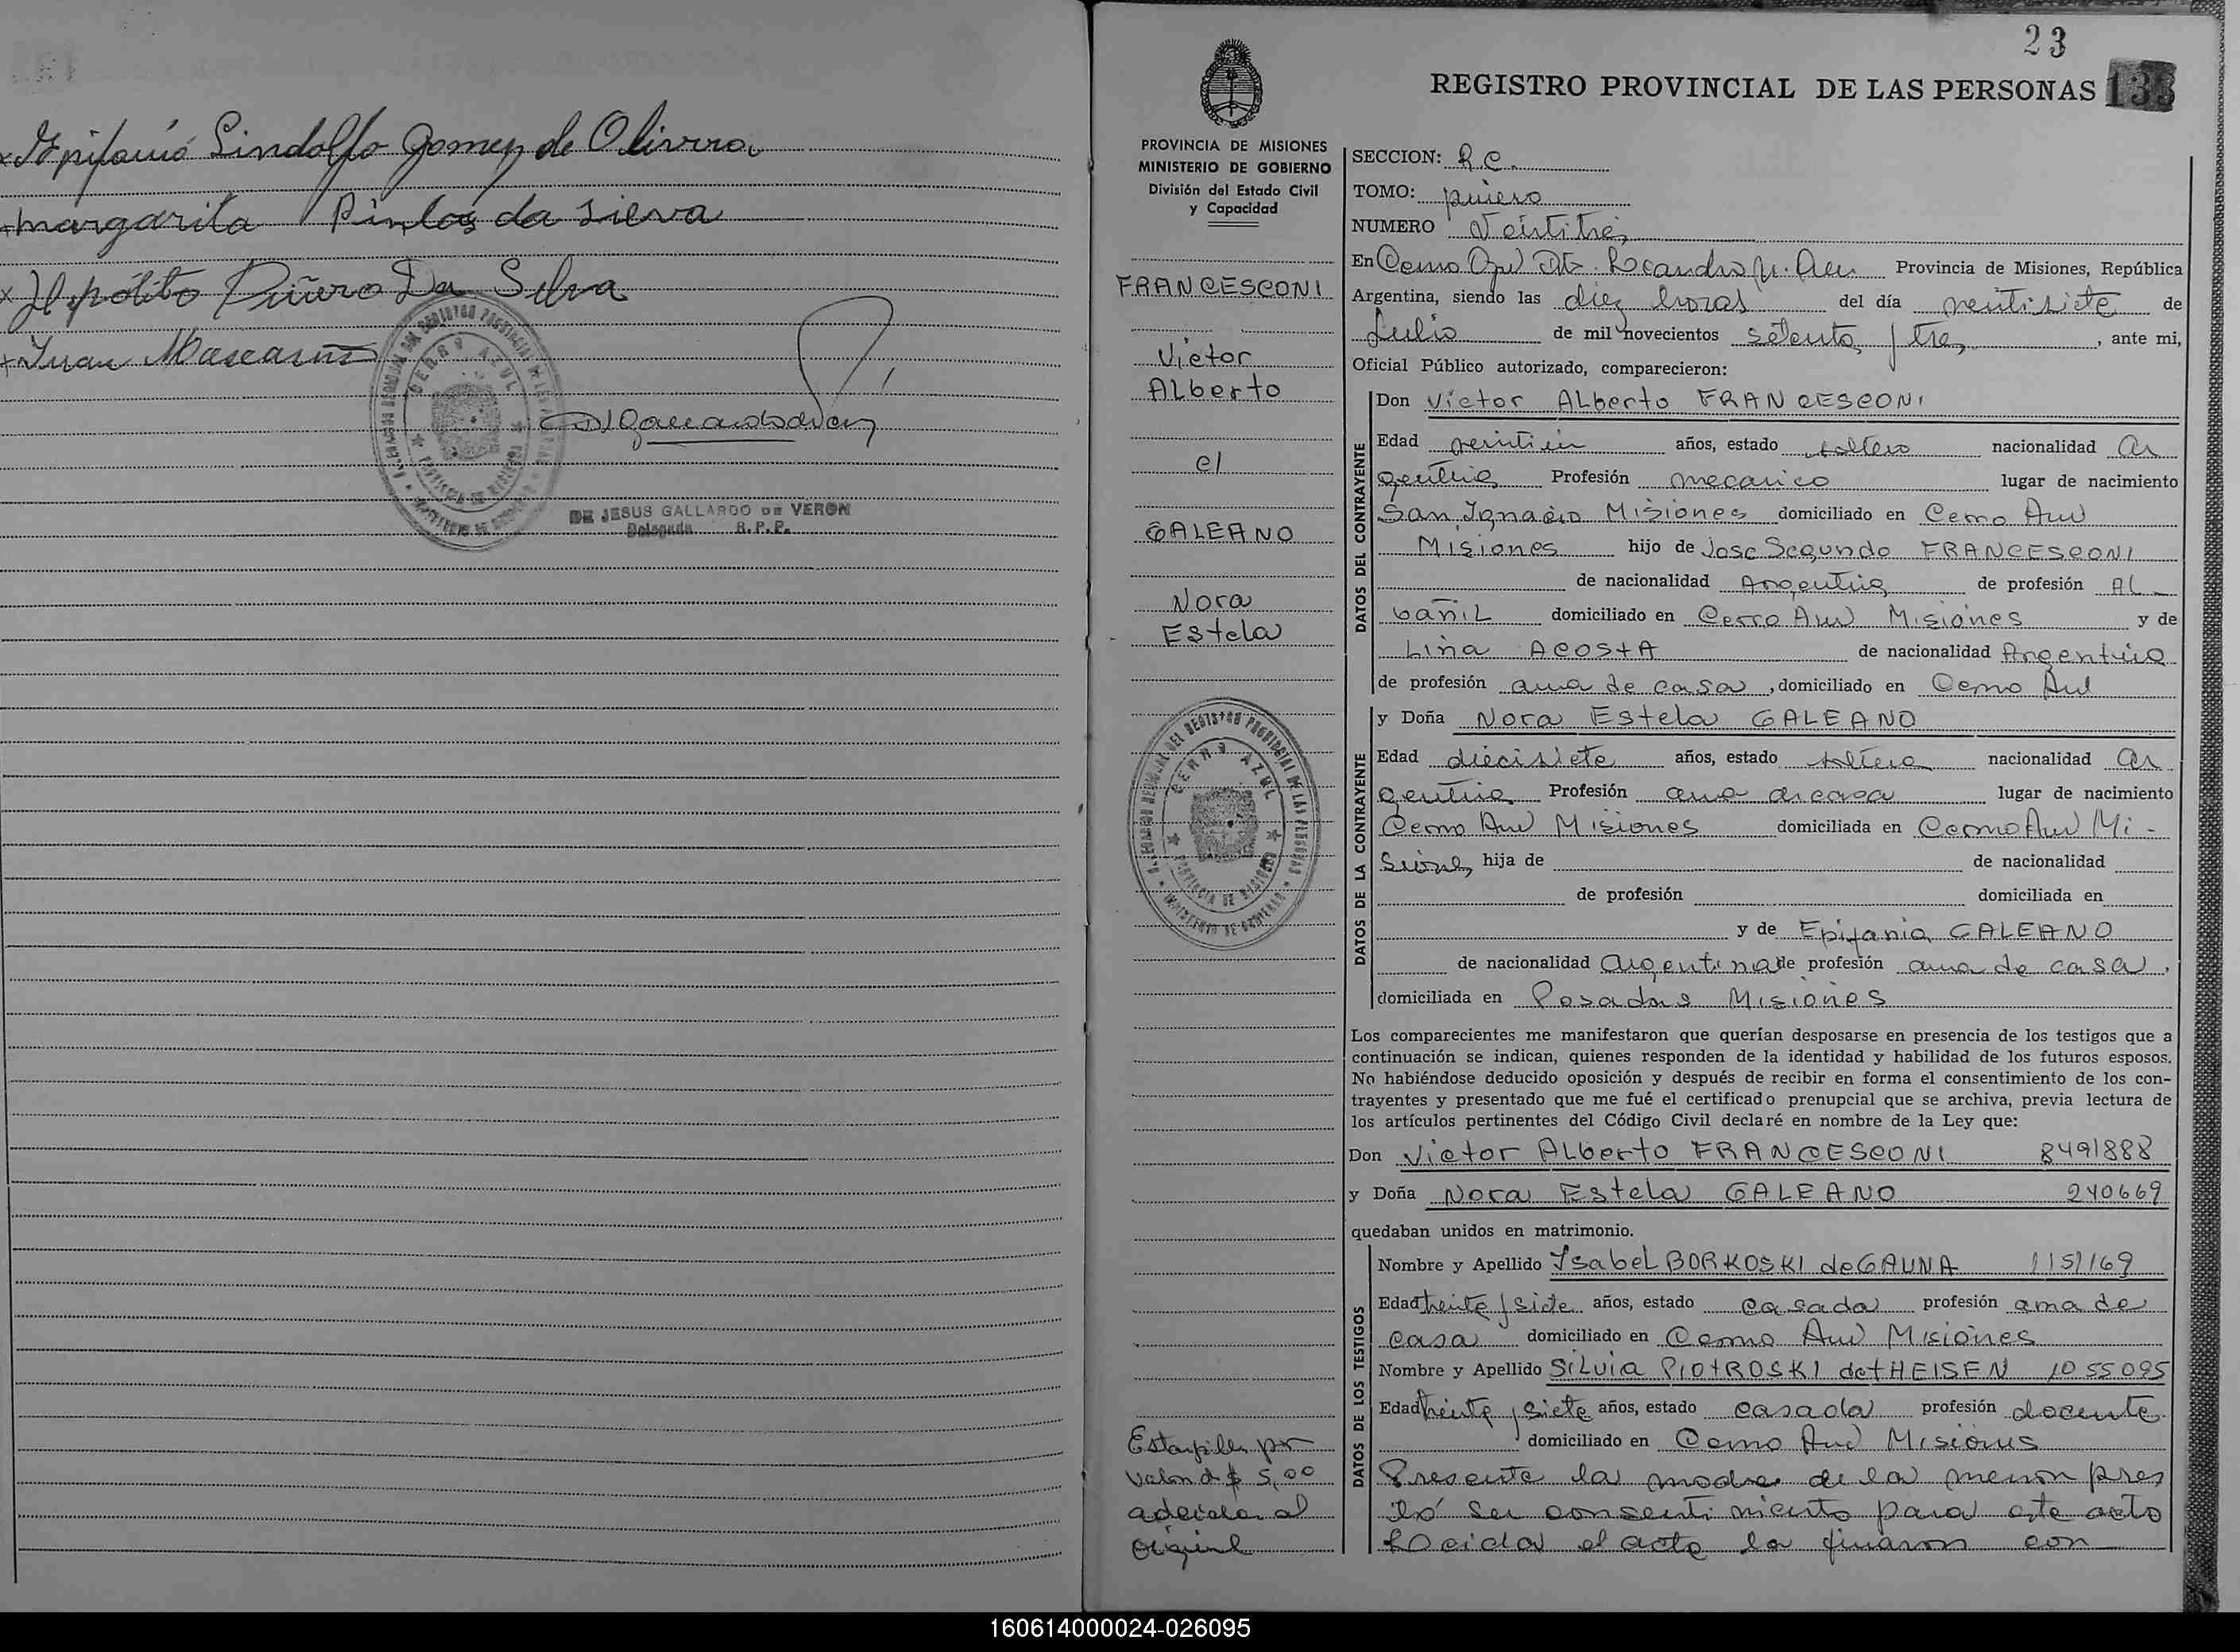 Epifanio Lindolfo Gomez de Olivera
margarita Pintos da silva
Hipólito Piñero Da Silva
Juan
REGISTRO PROVINCIAL
CERRO AZUL
PROVINCIA DE MISIONES
MINISTERIO DE GOBIERNO
DE JESUS GALLARDO DE VERON
Delegada R.P.P.
23
REGISTRO PROVINCIAL DE LAS PERSONAS 133
PROVINCIA DE MISIONES
MINISTERIO DE GOBIERNO
División del Estado Civil
y Capacidad
FRANCESCONI
Victor
Alberto
c/
GALEANO
Nora
Estela
CERRO AZUL
PROVINCIA DE MISIONES
MINISTERIO DE GOBIERNO
Estampilla por
valor de $ 5,00
adherida al
original
SECCION: R.C.
TOMO: primero
NUMERO Veintitres
En Cerro Azul Dto. Leandro N. Alem Provincia de Misiones, República
Argentina, siendo las diez horas del día veintisiete de
Julio de mil novecientos setenta y tres, ante mi,
Oficial Público autorizado, comparecieron:
DATOS DEL CONTRAYENTE
Don Victor Alberto FRANCESCONI
Edad veintiún años, estado soltero nacionalidad Ar
gentina Profesión mecanico lugar de nacimiento
San Ignacio Misiones domiciliado en Cerro Azul
Misiones hijo de Jose Segundo FRANCESCONI
de nacionalidad Argentina de profesión Al-
bañil domiciliado en Cerro Azul Misiones y de
Lina ACOSTA de nacionalidad Argentina
de profesión ama de casa, domiciliado en Cerro Azul
DATOS DE LA CONTRAYENTE
y Doña Nora Estela GALEANO
Edad diecisiete años, estado soltera nacionalidad Ar
gentina Profesión ama de casa lugar de nacimiento
Cerro Azul Misiones domiciliada en Cerro Azul Mi-
siones hija de de nacionalidad
de profesión domiciliada en
y de Epifania GALEANO
de nacionalidad argentina de profesión ama de casa,
domiciliada en Posadas Misiones
Los comparecientes me manifestaron que querían desposarse en presencia de los testigos que a
continuación se indican, quienes responden de la identidad y habilidad de los futuros esposos.
No habiéndose deducido oposición y después de recibir en forma el consentimiento de los con-
trayentes y presentado que me fué el certificado prenupcial que se archiva, previa lectura de
los artículos pertinentes del Código Civil declaré en nombre de la Ley que:
Don Victor Alberto FRANCESCONI 8491888
y Doña Nora Estela GALEANO 240669
quedaban unidos en matrimonio.
DATOS DE LOS TESTIGOS
Nombre y Apellido Ysabel BORKOSKI de GAUNA 1151169
Edad treinta y siete años, estado casada profesión ama de
casa domiciliado en Cerro Azul Misiones
Nombre y Apellido Silvia PIOTROSKI de THEISEN 1055095
Edad treinta y siete años, estado casada profesión docente
domiciliado en Cerro Azul Misiones
Presente la madre de la menor pres
tó su consentimiento para este acto
Leida el acta la firman con
160614000024-026095